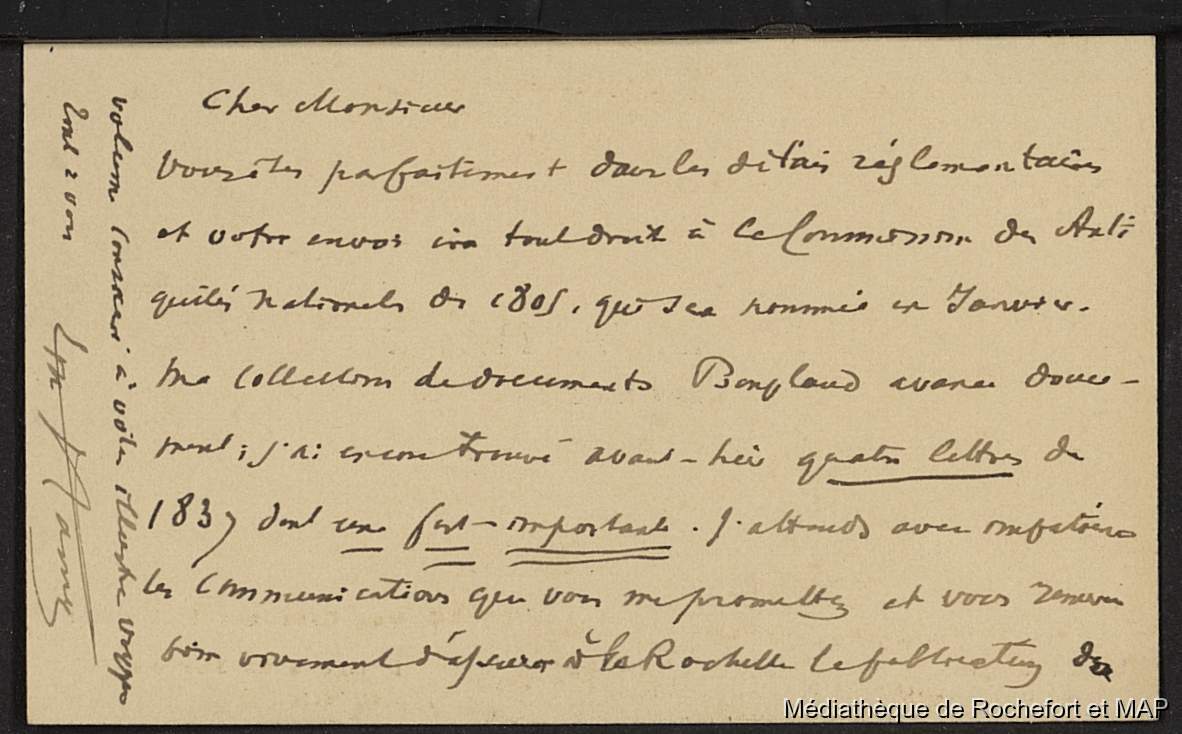 Cher Monsieur
Vous êtes parfaitement dans les délais réglementaires
et votre envoi ira tout droit à la Commission des Anti
quités Nationales de 1905, qui sera nommée en Janvier.
Ma collection de documents Bonpland avance douce-
ment ; j'ai encore trouvé avant-hier quatre lettres de
1837 dont une fort importante. J'attends avec impatience
les communications que vous me promettez et vous remercie
bien vivement d'assurer à la Rochelle la publication du
volume consacré à votre illustre voyageur
Tout à vous
E. Hamy
Médiathèque de Rochefort et MAP